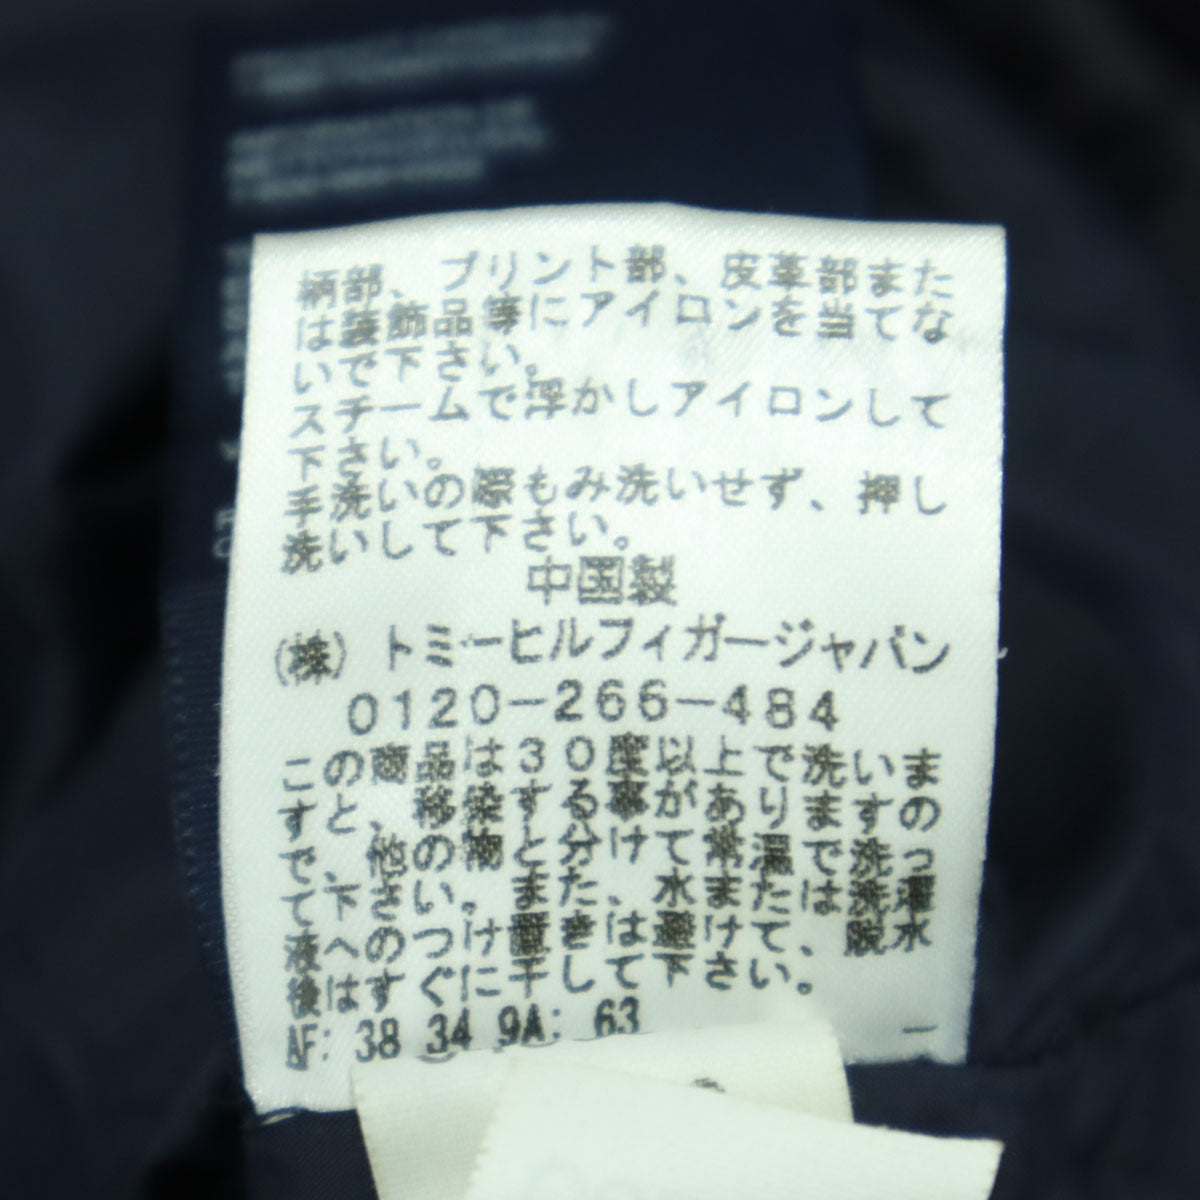 柄部、プリント部、皮革部また
は装飾品等にアイロンを当てな
いで下さい。
スチームで浮かしアイロンして
下さい。
手洗いの際もみ洗いせず、押し
洗いして下さい。
中国製
(株) トミーヒルフィガージャパン
0120-266-484
この商品は30度以上で洗いま
すと、移染する事があります の
で、他の物と分けて常温で洗っ
て下さい。また、水または洗濯
液へのつけ置きは避けて、脱水
後はすぐに干して下さい。
AF: 38 34 9A: 63